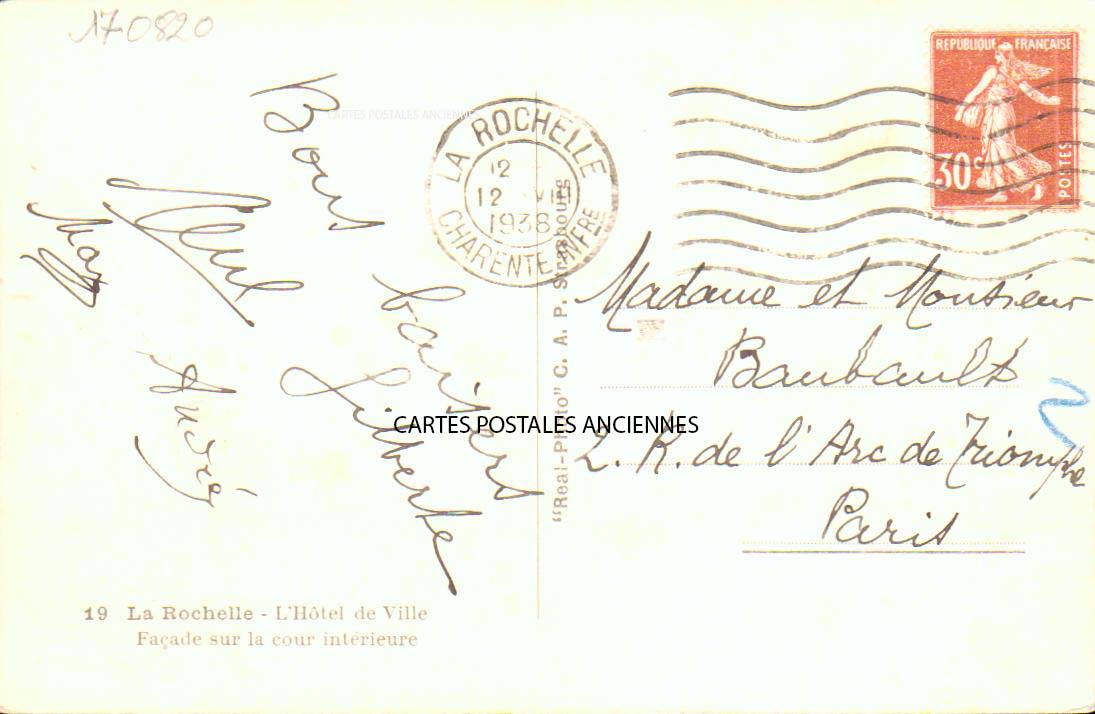 170820
REPUBLIQUE FRANÇAISE
30c
POSTES
LA ROCHELLE
12
12 VIII
1938
CHARENTE INFRE
CARTES POSTALES ANCIENNES
Bons baisers
Gilberte
André
May
Madame et Monsieur
Baubault
2. R. de l'Arc de Triomphe
Paris
CARTES POSTALES ANCIENNES
"Real-Photo" C. A. P. Strasbourg
19 La Rochelle - L'Hôtel de Ville
Façade sur la cour intérieure